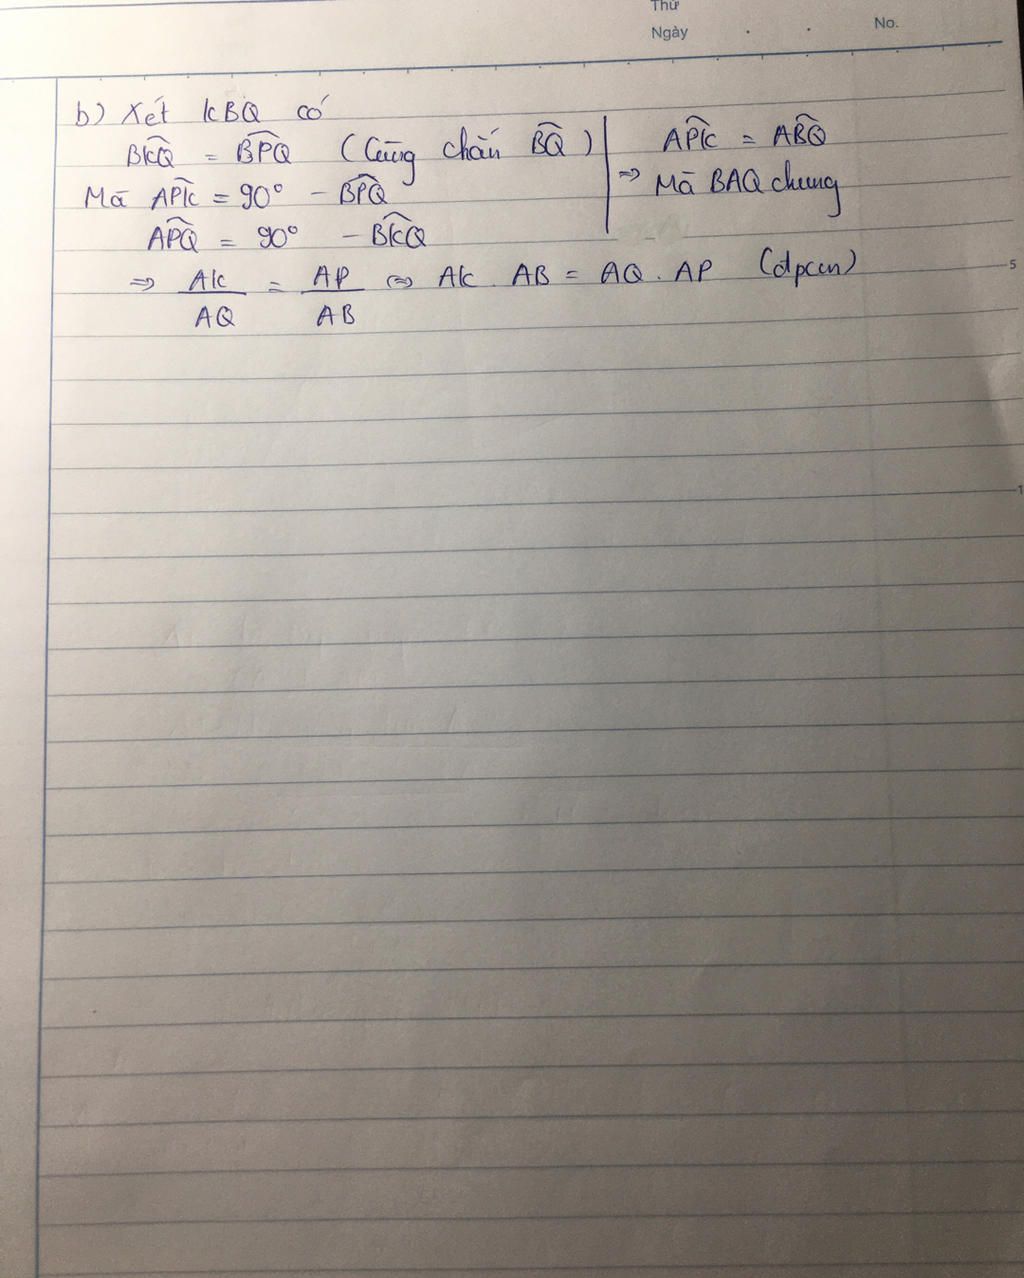 Thứ
Ngày . . No.
b) Xét KBQ có
BK̂Q = BP̂Q (Cùng chắn BQ̂)
Mà AP̂K = 90° - BP̂Q
AP̂Q = 90° - BK̂Q
AP̂K = AB̂Q
⇒ Mà BAQ chung
⇒ AK/AQ = AP/AB ⇔ AK . AB = AQ . AP (đpcm)
5
1